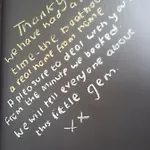 Thankyou
we have had a
time. the boathou
a real home from home
A pleasure to deal with you
from the minute we booked
we will tell everyone about
this little gem.
xx